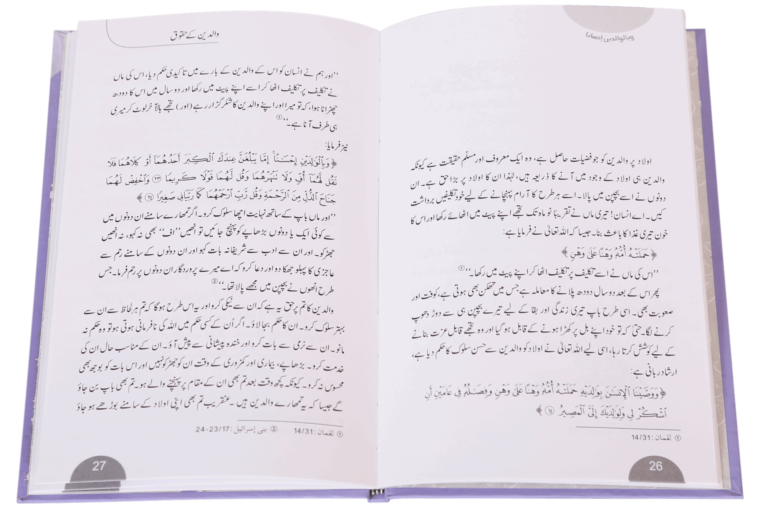 وبالوالدين إحسانا
اولاد پر والدین کو جو فضیلت حاصل ہے، وہ ایک معروف اور مسلّم حقیقت ہے کیونکہ
والدین ہی اولاد کے وجود میں آنے کا ذریعہ ہیں، لہٰذا ان کا اولاد پر بڑا حق ہے۔ ان
دونوں نے اسے بچپن میں پالا۔ اسے ہر طرح کا آرام پہنچانے کے لیے خود تکلیفیں برداشت
کیں۔ اے انسان! تیری ماں نے تقریباً نو ماہ تک تجھے اپنے پیٹ میں اٹھائے رکھا اور اس کا
خون تیری غذا کا باعث بنا۔ جیسا کہ اللہ تعالیٰ نے فرمایا ہے:
﴿ حَمَلَتْهُ أُمُّهُ وَهْنًا عَلَىٰ وَهْنٍ ﴾
’’اس کی ماں نے اسے تکلیف پر تکلیف اٹھا کر اپنے پیٹ میں رکھا۔‘‘①
پھر اس کے بعد دو سال دودھ پلانے کا معاملہ ہے جس میں تھکن بھی ہوتی ہے، کوفت اور
صعوبت بھی۔ اسی طرح باپ بھی تیری زندگی اور بقا کے لیے تیرے بچپن ہی سے دوڑ دھوپ
کرنے لگا۔ حتیٰ کہ تو خود اپنے بل پر کھڑا ہونے کے قابل ہو گیا اور وہ تجھے قابل عزت بنانے
کے لیے کوشش کرتا رہا، اسی لیے اللہ تعالیٰ نے اولاد کو والدین سے حسن سلوک کا حکم دیا ہے،
ارشاد ربانی ہے:
﴿ وَوَصَّيْنَا الْإِنسَانَ بِوَالِدَيْهِ حَمَلَتْهُ أُمُّهُ وَهْنًا عَلَىٰ وَهْنٍ وَفِصَالُهُ فِي عَامَيْنِ أَنِ
اشْكُرْ لِي وَلِوَالِدَيْكَ إِلَيَّ الْمَصِيرُ ﴿١٤﴾ ﴾
① لقمان :14/31
26
والدین کے حقوق
’’اور ہم نے انسان کو اس کے والدین کے بارے میں تاکیدی حکم دیا، اس کی ماں
نے تکلیف پر تکلیف اٹھا کر اسے اپنے پیٹ میں رکھا اور دو سال میں اس کا دودھ
چھڑانا ہوا، کہ تو میرا اور اپنے والدین کا شکر گزار رہے (اور) تجھے بالآخر لوٹ کر میری
ہی طرف آنا ہے۔‘‘①
نیز فرمایا:
﴿ وَبِالْوَالِدَيْنِ إِحْسَانًا إِمَّا يَبْلُغَنَّ عِندَكَ الْكِبَرَ أَحَدُهُمَا أَوْ كِلَاهُمَا فَلَا
تَقُل لَّهُمَا أُفٍّ وَلَا تَنْهَرْهُمَا وَقُل لَّهُمَا قَوْلًا كَرِيمًا ﴿٢٣﴾ وَاخْفِضْ لَهُمَا
جَنَاحَ الذُّلِّ مِنَ الرَّحْمَةِ وَقُل رَّبِّ ارْحَمْهُمَا كَمَا رَبَّيَانِي صَغِيرًا ﴿٢٤﴾ ﴾
’’اور ماں باپ کے ساتھ نہایت اچھا سلوک کرو۔ اگر تمھارے سامنے ان دونوں میں
سے کوئی ایک یا دونوں بڑھاپے کو پہنچ جائیں تو انھیں ’’اف‘‘ بھی نہ کہو، نہ انھیں
جھڑکو۔ اور ان سے ادب سے شریفانہ بات کہو اور ان دونوں کے سامنے رحم سے
عاجزی کا پہلو جھکا دو اور دعا کرو کہ اے میرے پروردگار ان دونوں پر رحم فرما۔ جس
طرح انھوں نے بچپن میں مجھے پالا تھا۔‘‘②
والدین کا تم پر حق یہ ہے کہ ان سے نیکی کرو اور یہ اس طرح ہو گا کہ تم ہر لحاظ سے ان سے
بہتر سلوک کرو۔ ان کا حکم بجا لاؤ۔ اگر ان کے کسی حکم میں اللہ کی نافرمانی ہوتی ہو تو وہ حکم نہ
مانو۔ ان سے نرمی سے بات کرو اور خندہ پیشانی سے پیش آؤ۔ ان کے مناسب حال ان کی
خدمت کرو۔ بڑھاپے، بیماری اور کمزوری کے وقت ان کو جھڑکو نہیں اور اس بات کو بوجھ بھی
محسوس نہ کرو۔ کیونکہ کچھ وقت بعد تم بھی ان کے مقام پر پہنچنے والے ہو۔ تم بھی باپ بن جاؤ
گے جیسا کہ یہ تمھارے والدین ہیں۔ عنقریب تم بھی اپنی اولاد کے سامنے بوڑھے ہو جاؤ
① لقمان :14/31 ② بنی إسرائیل :24-23/17
27